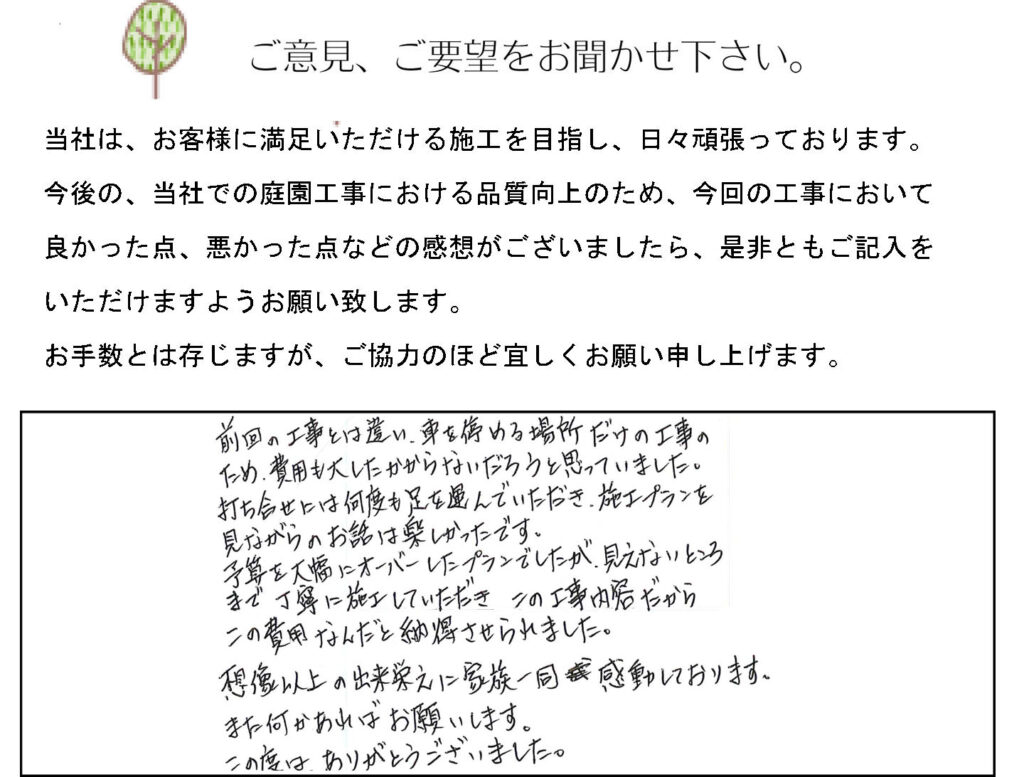 ご意見、ご要望をお聞かせ下さい。
当社は、お客様に満足いただける施工を目指し、日々頑張っております。
今後の、当社での庭園工事における品質向上のため、今回の工事において
良かった点、悪かった点などの感想がございましたら、是非ともご記入を
いただけますようお願い致します。
お手数とは存じますが、ご協力のほど宜しくお願い申し上げます。
前回の工事とは違い、車を停める場所だけの工事の
ため、費用も大したかからないだろうと思っていました。
打ち合せには何度も足を運んでいただき、施工プランを
見ながらのお話は楽しかったです。
予算を大幅にオーバーしたプランでしたが、見えないところ
まで丁寧に施工していただき この工事内容だから
この費用なんだと納得させられました。
想像以上の出来栄えに家族一同感動しております。
また何かあればお願いします。
この度は、ありがとうございました。